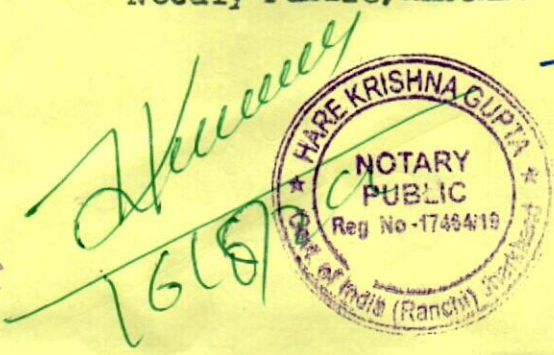 Notary Public,
HARE KRISHNA GUPTA
NOTARY
PUBLIC
Reg No-17464/19
Gov. of India (Ranchi) Jharkhand